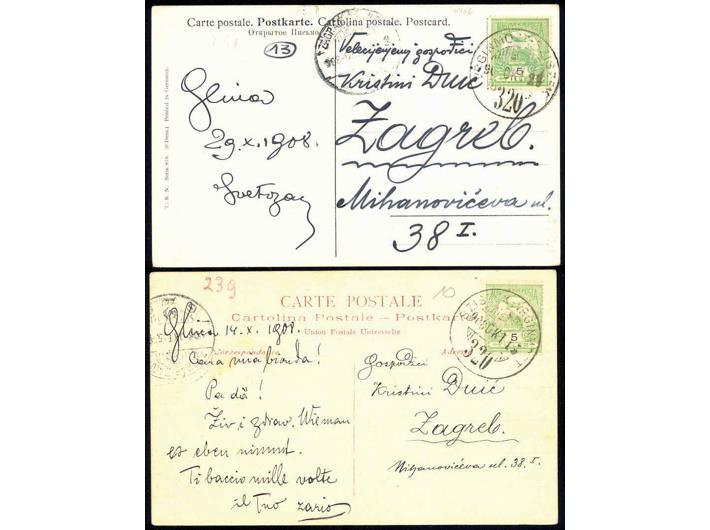 Carte postale. Postkarte. Cartolina postale. Postcard.
Открытое Письмо
13
Glina
29.X.1908.
Svetozar
Velecijenjenoj gospođici
Kristini Duić
Zagreb.
Mihanovićeva ul.
38 I.
320
T. S. N. Serie
Printed in Germany.
239
10
CARTE POSTALE
Cartolina Postale – Postkarte
Union Postale Universelle
Correspondance
Glina 14.X.1908.
Cara mia bionda!
Pa da!
Živ i zdrav. Wie man
es eben nimmt.
Ti baccio mille volte
il tuo zario
Gospođici
Kristini Duić
Zagreb.
Mihanovićeva ul. 38. I.
5
320